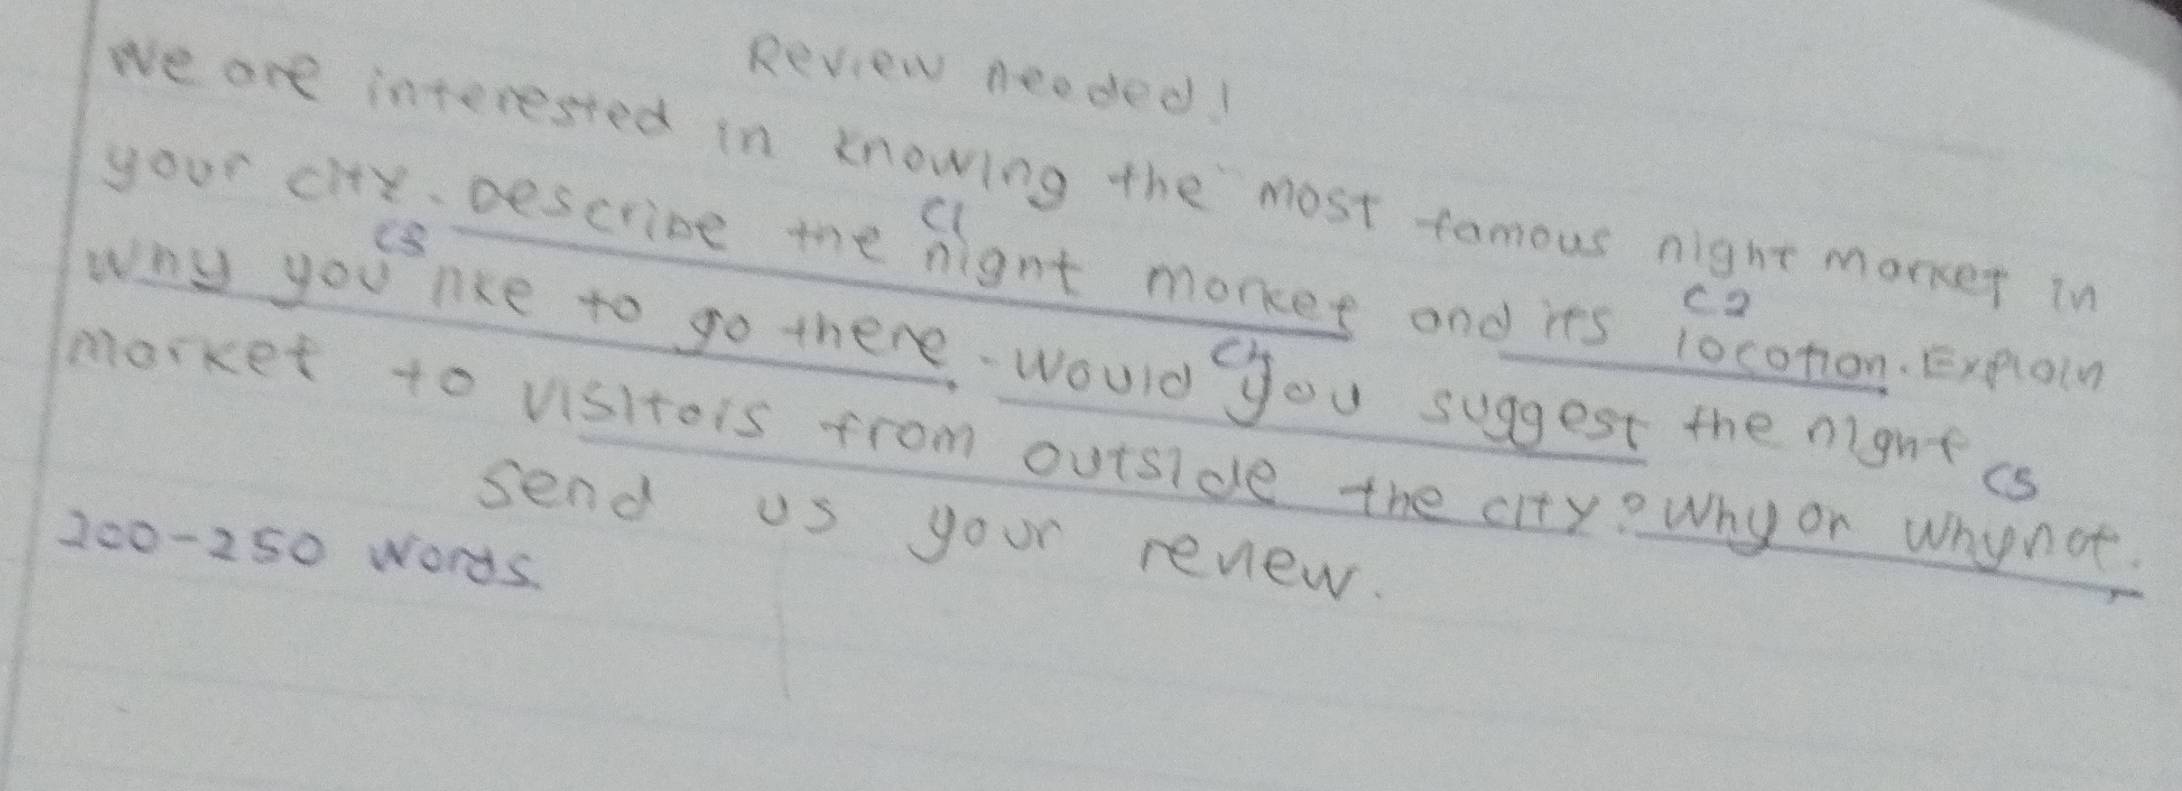 Review needed!
We are interested in knowing the most famous night market in
your city. Describe the night market and its location. Explain
C1
C2
why you like to go there. Would you suggest the night
C3
C4
market to visitors from outside the city? Why or why not.
C5
Send us your review.
200-250 words